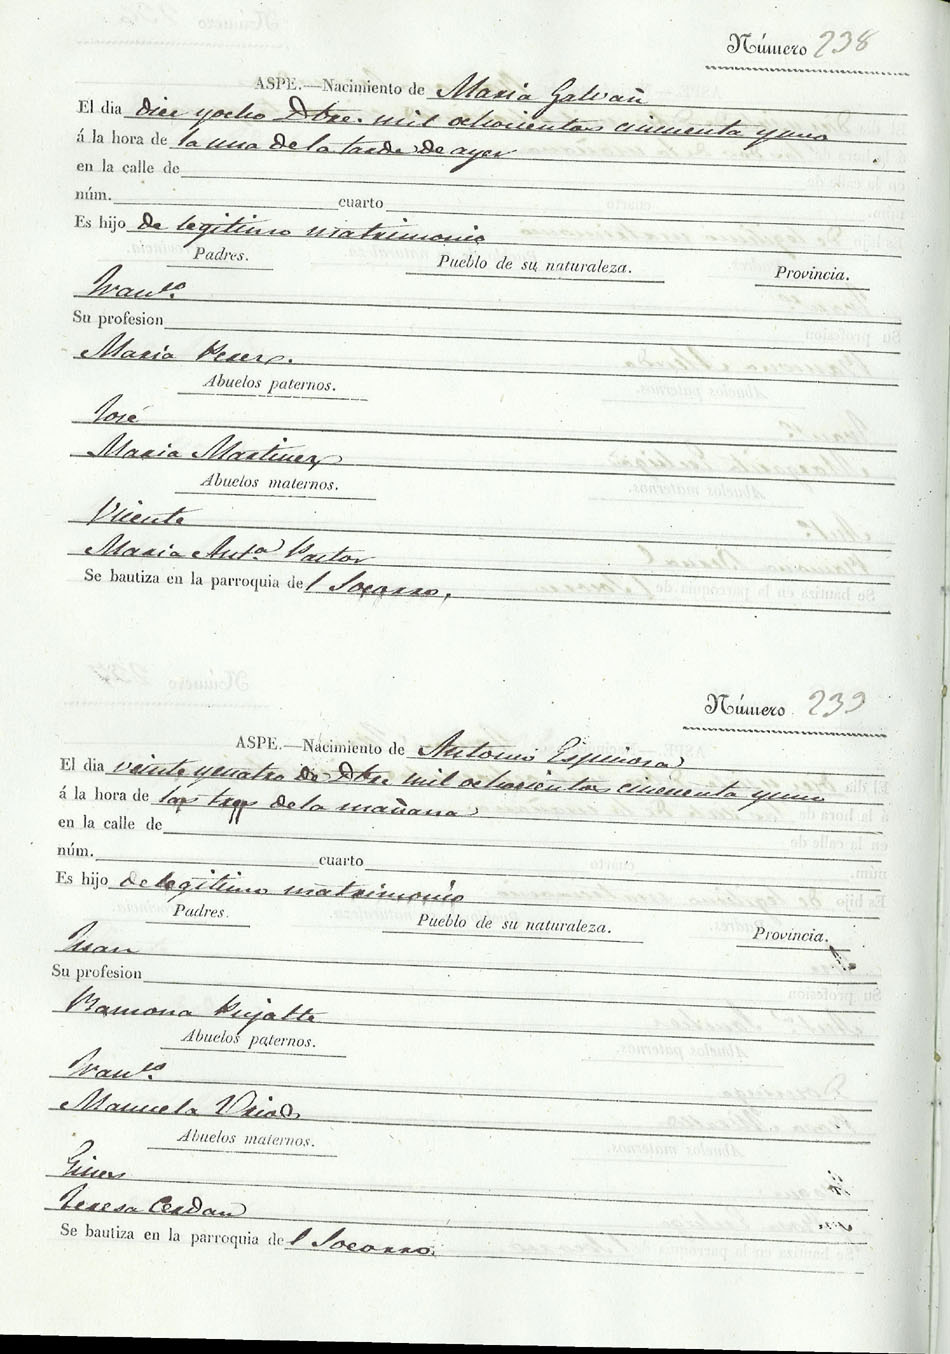 Número 238
ASPE.—Nacimiento de Maria Galvañ
El dia diez y ocho Dbre. mil ochocientos cincuenta y uno
á la hora de la una de la tarde de ayer
en la calle de
núm. cuarto
Es hijo de legitimo matrimonio
Padres. Pueblo de su naturaleza. Provincia.
Franco.
Su profesion
Maria Perez.
Abuelos paternos.
José
Maria Martinez
Abuelos maternos.
Vicente
Maria Anta. Pastor
Se bautiza en la parroquia del Socorro.
Número 239
ASPE.—Nacimiento de Antonio Espinosa
El dia veinte y cuatro de Dbre mil ochocientos cincuenta y uno
á la hora de las tres de la mañana
en la calle de
núm. cuarto
Es hijo de legitimo matrimonio
Padres. Pueblo de su naturaleza. Provincia.
Juan
Su profesion
Ramona Pujalte
Abuelos paternos.
Franco.
Manuela
Abuelos maternos.
Gines
Teresa Cerdan
Se bautiza en la parroquia del Socorro.